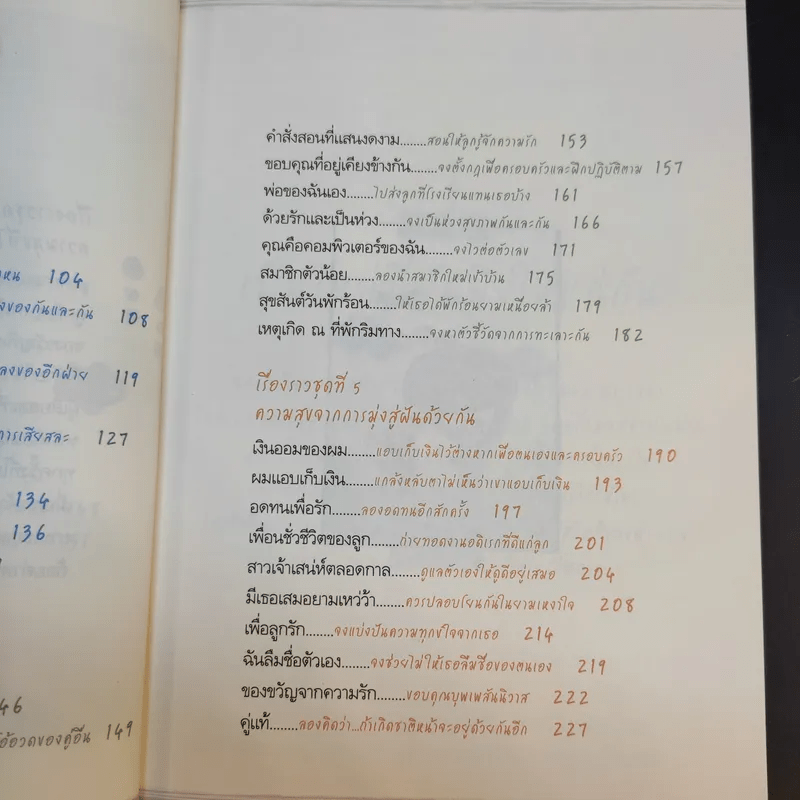 หน 104
งของกันและกัน 108
ลงของอีกฝ่าย 119
การเสียสละ 127
134
136
46
โอ้อวดของคู่อื่น 149
คำสั่งสอนที่แสนงดงาม........สอนให้ลูกรู้จักความรัก 153
ขอบคุณที่อยู่เคียงข้างกัน........จงตั้งกฎเพื่อครอบครัวและฝึกปฏิบัติตาม 157
พ่อของฉันเอง........ไปส่งลูกที่โรงเรียนแทนเธอบ้าง 161
ด้วยรักและเป็นห่วง........จงเป็นห่วงสุขภาพกันและกัน 166
คุณคือคอมพิวเตอร์ของฉัน........จงไวต่อตัวเลข 171
สมาชิกตัวน้อย........ลองนำสมาชิกใหม่เข้าบ้าน 175
สุขสันต์วันพักร้อน........ให้เธอได้พักร้อนยามเหนื่อยล้า 179
เหตุเกิด ณ ที่พักริมทาง........จงหาตัวชี้วัดจากการทะเลาะกัน 182
เรื่องราวชุดที่ 5
ความสุขจากการมุ่งสู่ฝันด้วยกัน
เงินออมของผม........แอบเก็บเงินไว้ต่างหากเพื่อตนเองและครอบครัว 190
ผมแอบเก็บเงิน........แกล้งหลับตาไม่เห็นว่าเขาแอบเก็บเงิน 193
อดทนเพื่อรัก........ลองอดทนอีกสักครั้ง 197
เพื่อนชั่วชีวิตของลูก........ถ่ายทอดงานอดิเรกที่ดีแก่ลูก 201
สาวเจ้าเสน่ห์ตลอดกาล........ดูแลตัวเองให้ดูดีอยู่เสมอ 204
มีเธอเสมอยามเหว่ว้า........ควรปลอบโยนกันในยามเหงาใจ 208
เพื่อลูกรัก........จงแบ่งปันความทุกข์ใจจากเธอ 214
ฉันลืมชื่อตัวเอง........จงช่วยไม่ให้เธอลืมชื่อของตนเอง 219
ของขวัญจากความรัก........ขอบคุณบุพเพสันนิวาส 222
คู่แท้........ลองคิดว่า...ถ้าเกิดชาติหน้าจะอยู่ด้วยกันอีก 227